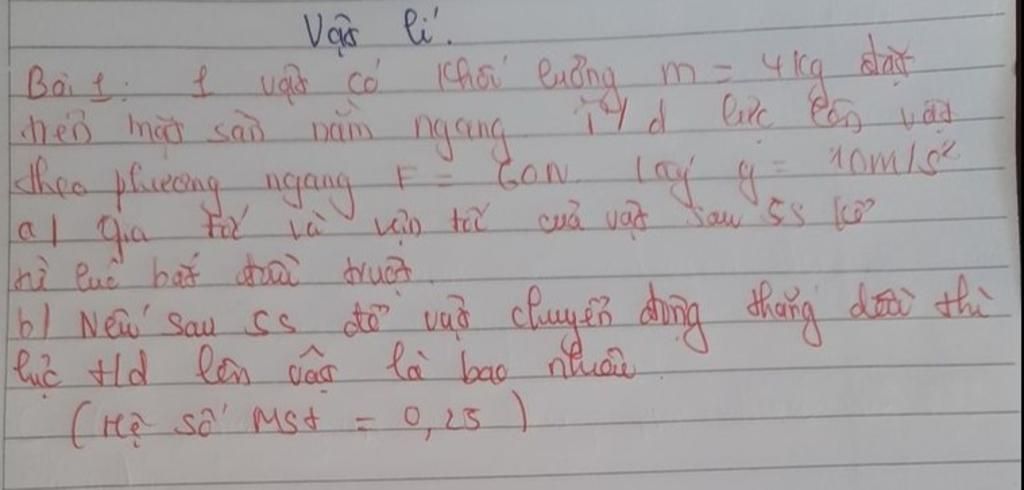 Vật lí.
Bài 1: 1 vật có khối lượng m = 4kg đặt
trên mặt sàn nằm ngang T/d lực lên vật
theo phương ngang F = 60N lấy g = 10m/s²
a) Gia tốc và vận tốc của vật sau 5s kể
từ lúc bắt đầu trượt
b) Nếu sau 5s đó vật chuyển động thẳng đều thì
lực t/d lên vật là bao nhiêu
(Hệ số Mst = 0,25)